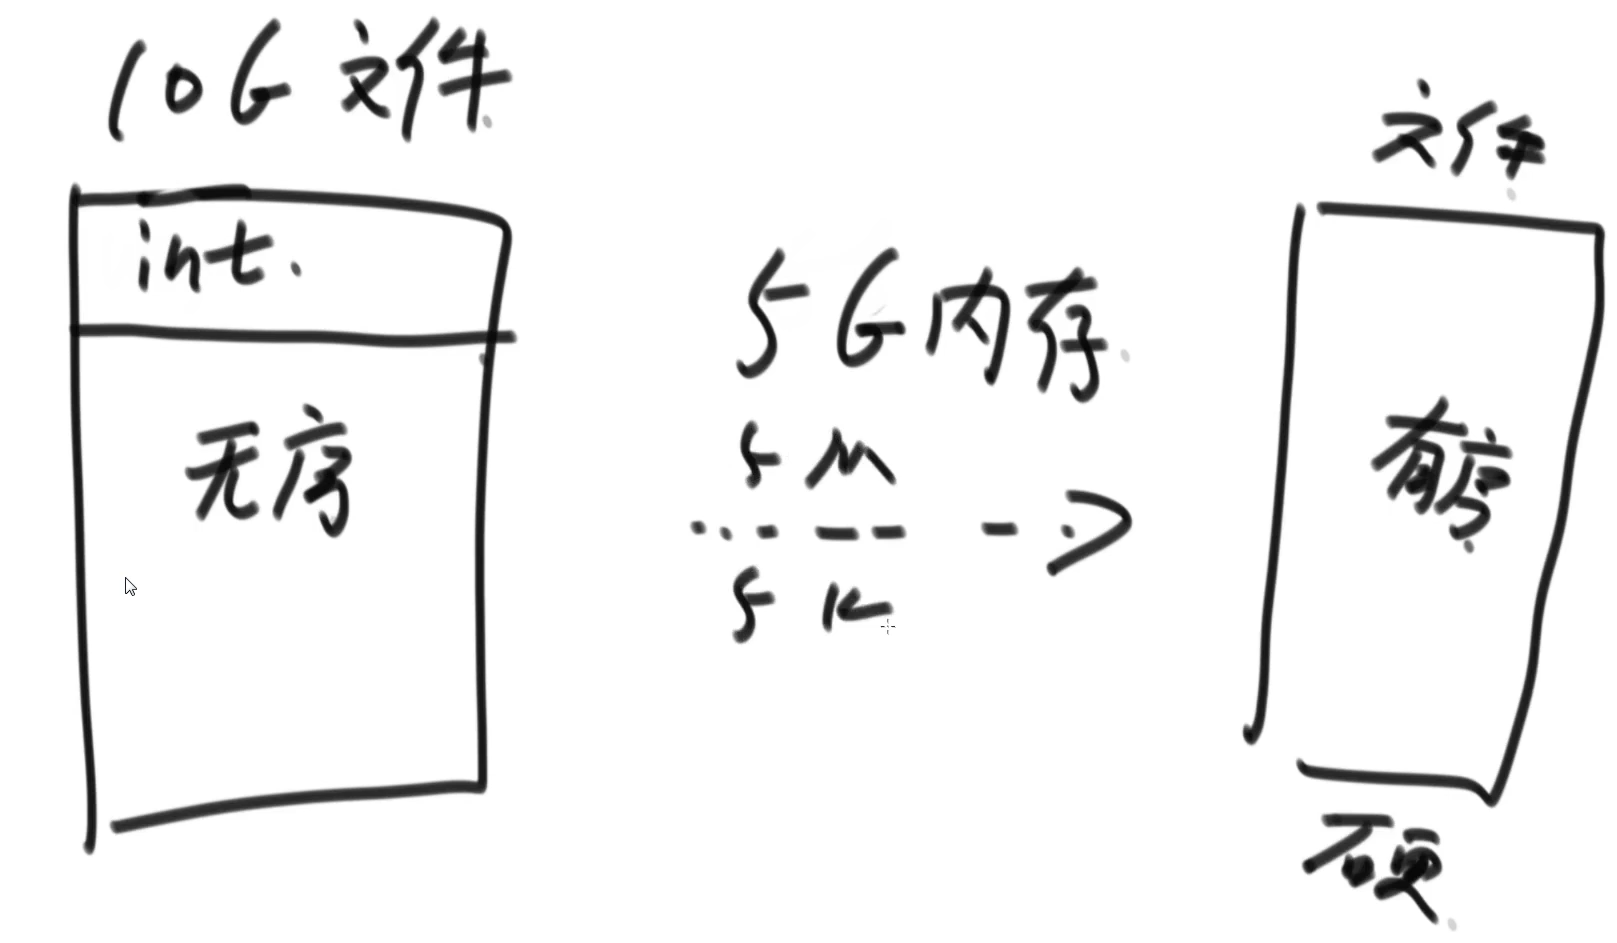 10G 文件
int.
无序
5G内存
5M
5K
文件
有序
硬